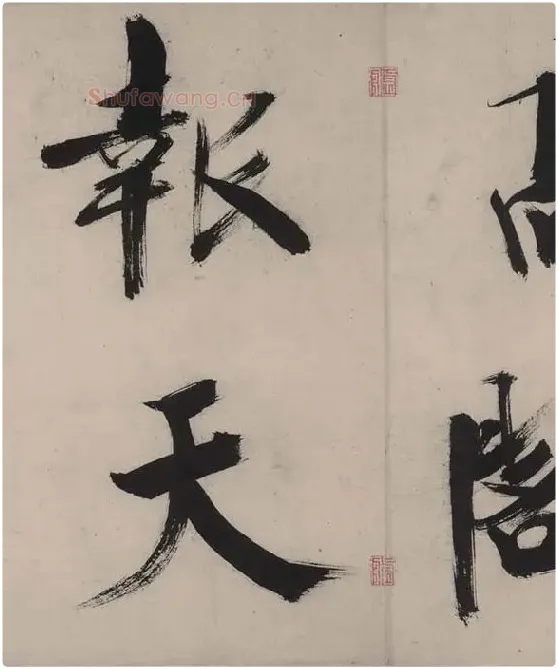 高閣
報天
Shufawang.cn